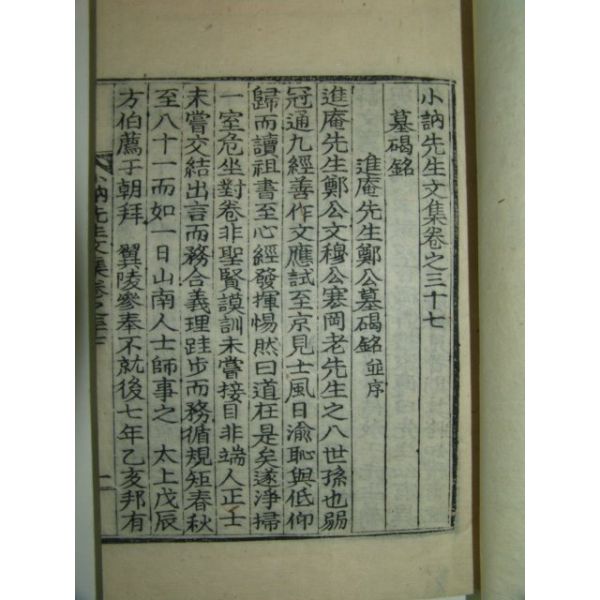 小訥先生文集卷之三十七
墓碣銘
進庵先生鄭公墓碣銘 並序
進庵先生鄭公文穆公寒岡老先生之八世孫也弱
冠通九經善作文應試至京見士風日渝恥與低仰
歸而讀祖書至心經發揮惕然曰道在是矣遂淨掃
一室危坐對卷非聖賢謨訓未嘗接目非端人正士
未嘗交結出言而務合義理跬步而務循規矩春秋
至八十一而如一日山南人士師事之 太上戊辰
方伯薦于朝拜 翼陵參奉不就後七年乙亥邦有
小訥先生文集卷之三十七